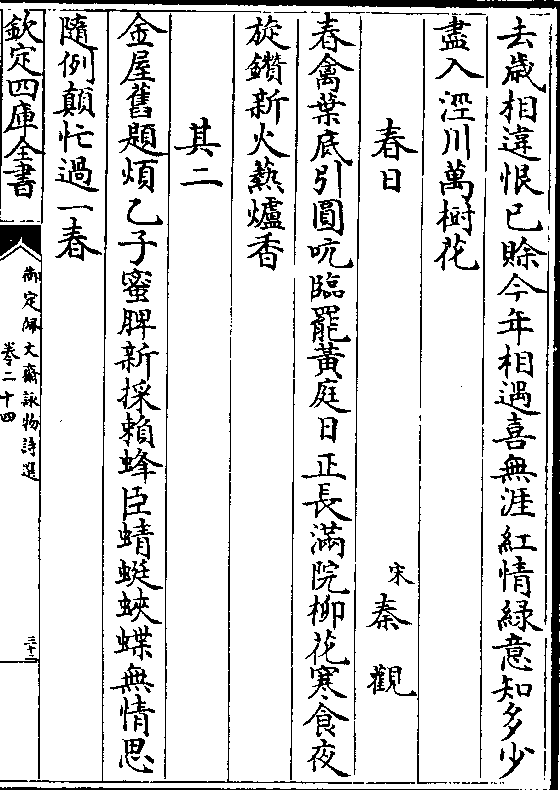 去歳相違恨已賒今年相遇喜無涯紅情緑意知多少
盡入涇川萬樹花
春日
宋秦觀
春禽葉底引圓吭臨罷黃庭日正長滿院柳花寒食夜
旋鑚新火爇爐香
其二
金屋舊題煩乙子蜜脾新採賴蜂臣蜻蜓蛺蝶無情思
隨例顛忙過一春
欽定四庫全書
御定佩文齋詠物詩選
卷二十四
三十二